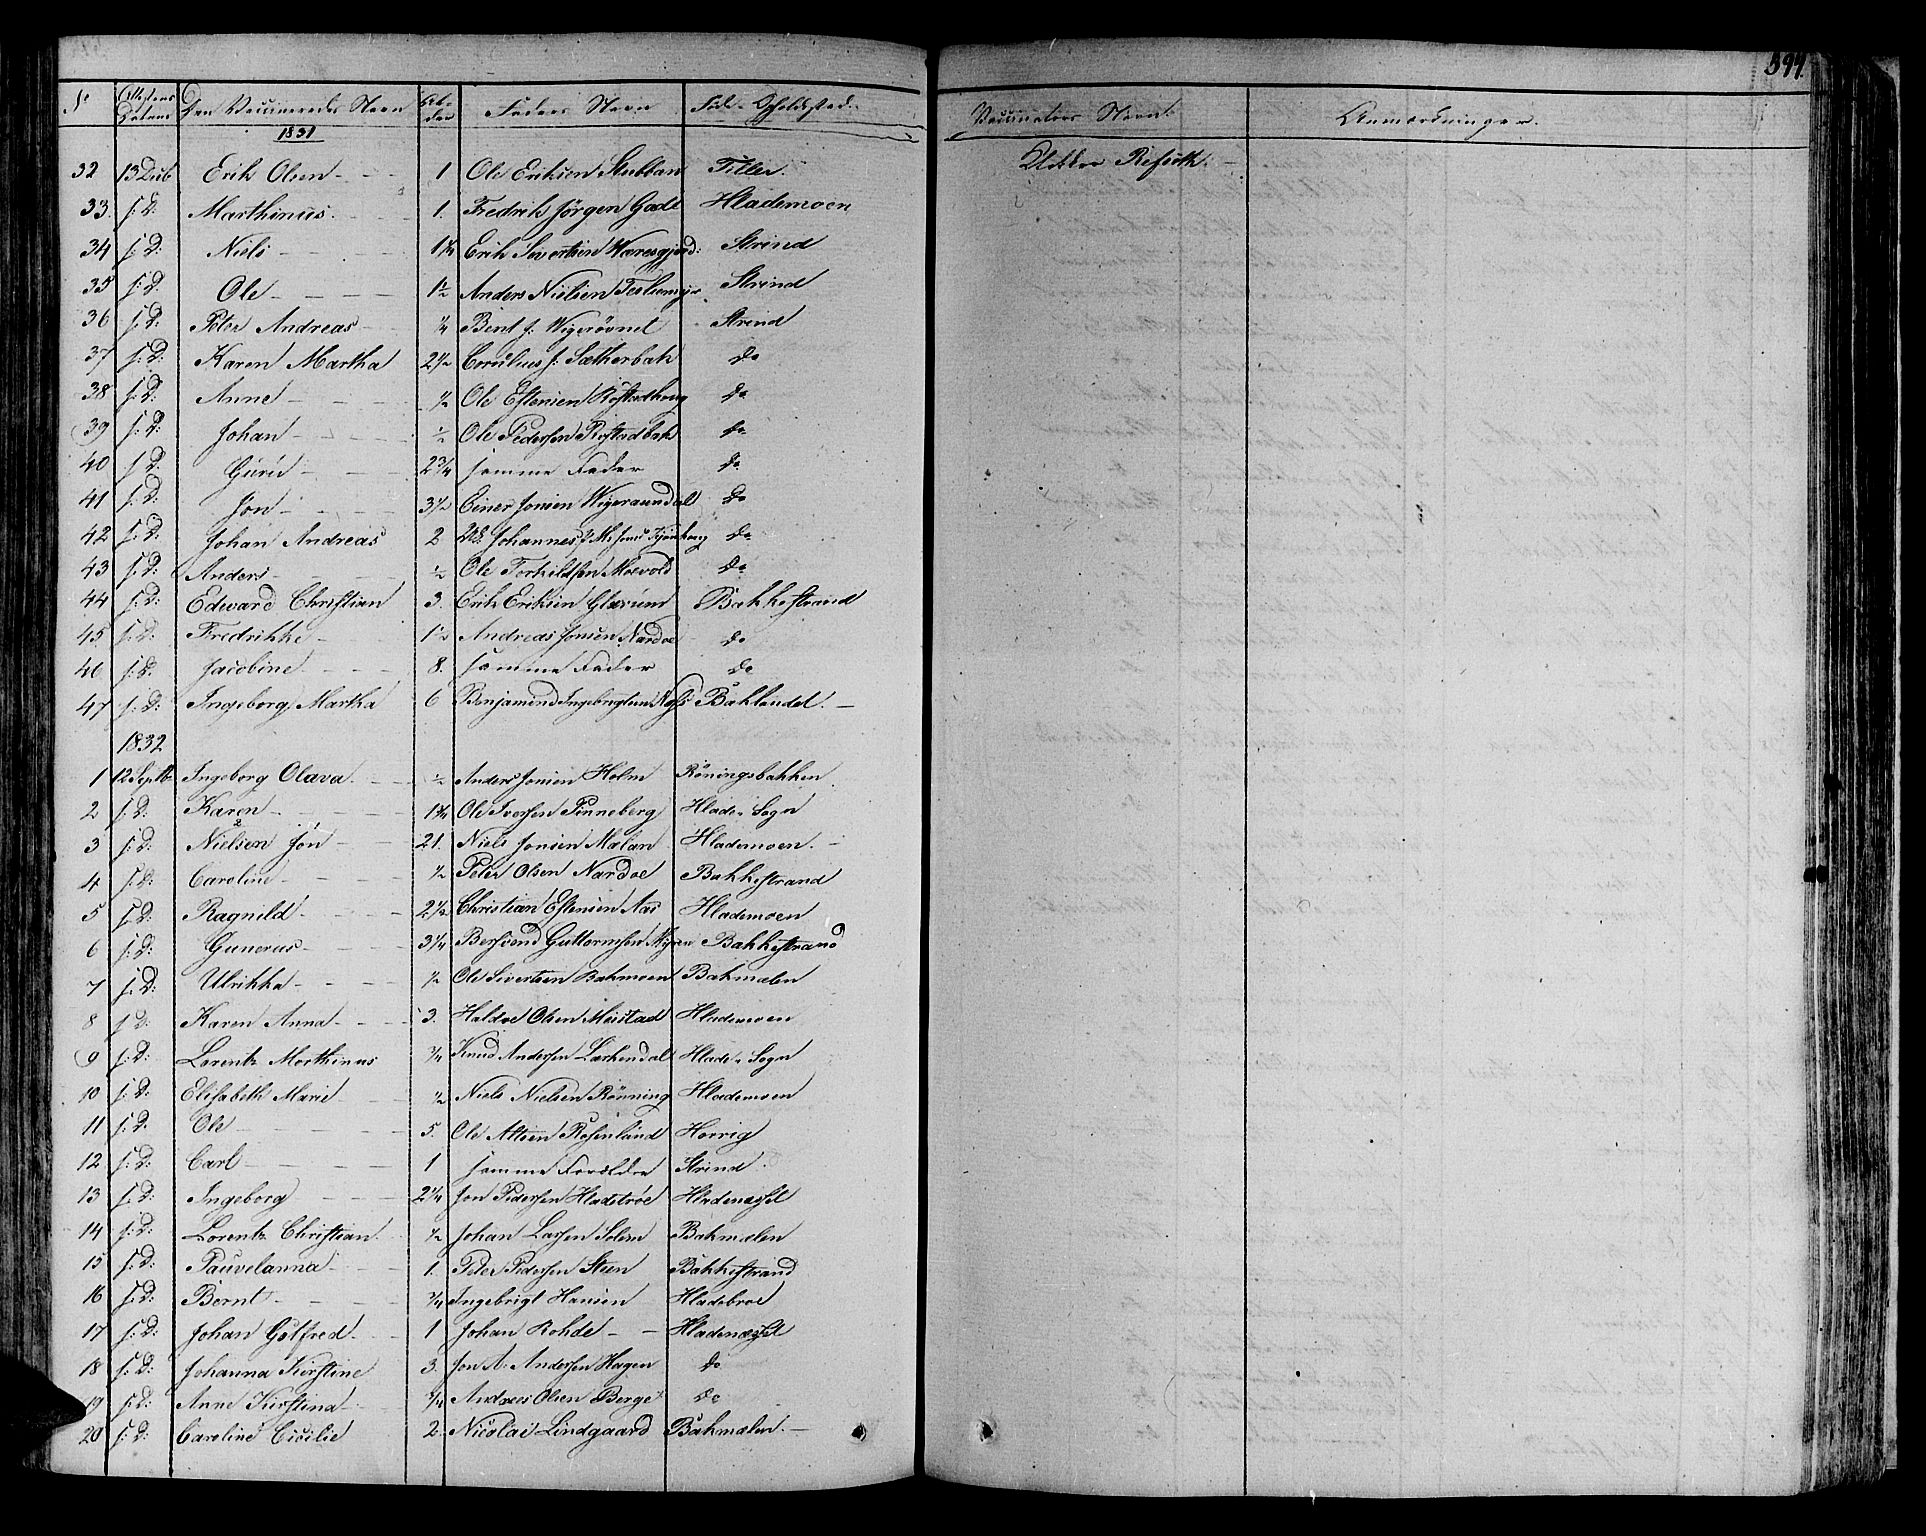 594.
Nr Attestens Datum Den Vaccineredes Navn Al- der Faders Navn Føde- Opholdsted. Vaccinators Navn. Anmærkninger.
1831
32 13 Decb Erik Olsen 1 Ole Eriksen Stubban Tiller. Refseth.
33. s: D: Marthinus. 1. Fredrik Jørgen Gade Hlademoen
34 s: D: Niels 1 1/4 Erik Sivertsen Strind
35 s: D: Ole 1 1/2 Anders Nielsen Strind
36 s: D: Peter Andreas 1/4 Bent Strind
37 s: D: Karen Martha 2 1/2 Cornelius J: Sætherbak do
38 s: D: Anne 1/2 Ole Estensen do
39 s: D: Johan 1/2 Ole Pedersen do
40 s: D: Guru 2 3/4 samme Fader do
41 s: D: Jon 3 1/2 Einer Jonsen do
42 s: D: Johan Andreas 2 Johannes do
43 s: D: Anders 1/2 Ole Torkildsen Moevold do
44 s: D: Edward Christian 3. Erik Eriksen Bakkestrand
45 s: D: Fredrikke 1 1/2 Andreas Jonsen Nardoe do
46 s: D: Jacobine 8. samme Fader do
47 s: D: Ingeborg Martha 6 Benjamind Ingebrigtsen Baklandet.
1832
1 12 Septb Ingeborg Olava. 1/2 Anders Jonsen Holm Röningsbakken
2 s: D: Karen 1 3/4 Ole Iversen Pinneberg Hlade Sogn
3 s: D: Nielsen Jon 21. Niels Jonsen Malan Hlademoen.
4 s: D: Caroline 1/2 Peter Olsen Nardoe Bakkestrand
5 s: D: Ragnild 2 1/2 Christian Estensen Aas Hlademoen
6 s: D: Gunerus 3 1/4 Bersvend Guttormsen Myren Bakkestrand
7 s: D: Ulrikka 1/2 Ole Sivertsen Bakmoen Bakmælen
8 s: D: Karen Anna 3. Haldoe Olsen Mustad Hlademoen
9 s: D: Lorentz Morthinus 3/4 Knud Andersen Lerkendal Hlade Sogn
10 s: D: Elisabeth Marie 1/2 Niels Nielsen Rönning Hlademoen
11 s: D: Ole 5. Ole Altsen Rosenland Horrig
12 s: D: Carl 1 samme Forældre Strind.
13 s: D: Ingeborg 2 1/4 Jon Pedersen Hladetrøe Hladenæsset
14 s: D: Lorentz Christian. 1/2 Johan Larsen Solem Bakmælen
15 s: D: Pauvelanna 1. Peter Pedersen Steen Bakkestrand
16 s: D: Bernt 3/4 Ingebrigt Hansen Hladebroe
17 s: D: Johan Gulfred 1 Johan Rohde Hladenæsset
18 s: D: Johanna Kirstine 3. Jon A: Andersen Hagen do
19 s: D: Anne Kirstina 3/4 Andreas Olsen Berge do
20 s: D: Caroline Cicilie 2. Nicolai Lindgaard Bakmælen.